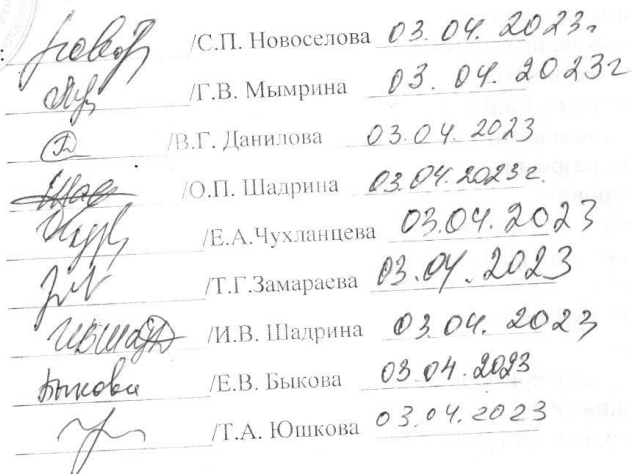 /С.П. Новоселова 03.04.2023г
/Г.В. Мымрина 03.04.2023г
/В.Г. Данилова 03.04.2023
/О.П. Шадрина 03.04.2023г.
/Е.А.Чухланцева 03.04.2023
/Т.Г.Замараева 03.04.2023
/И.В. Шадрина 03.04.2023
Быкова /Е.В. Быкова 03.04.2023
/Т.А. Юшкова 03.04.2023